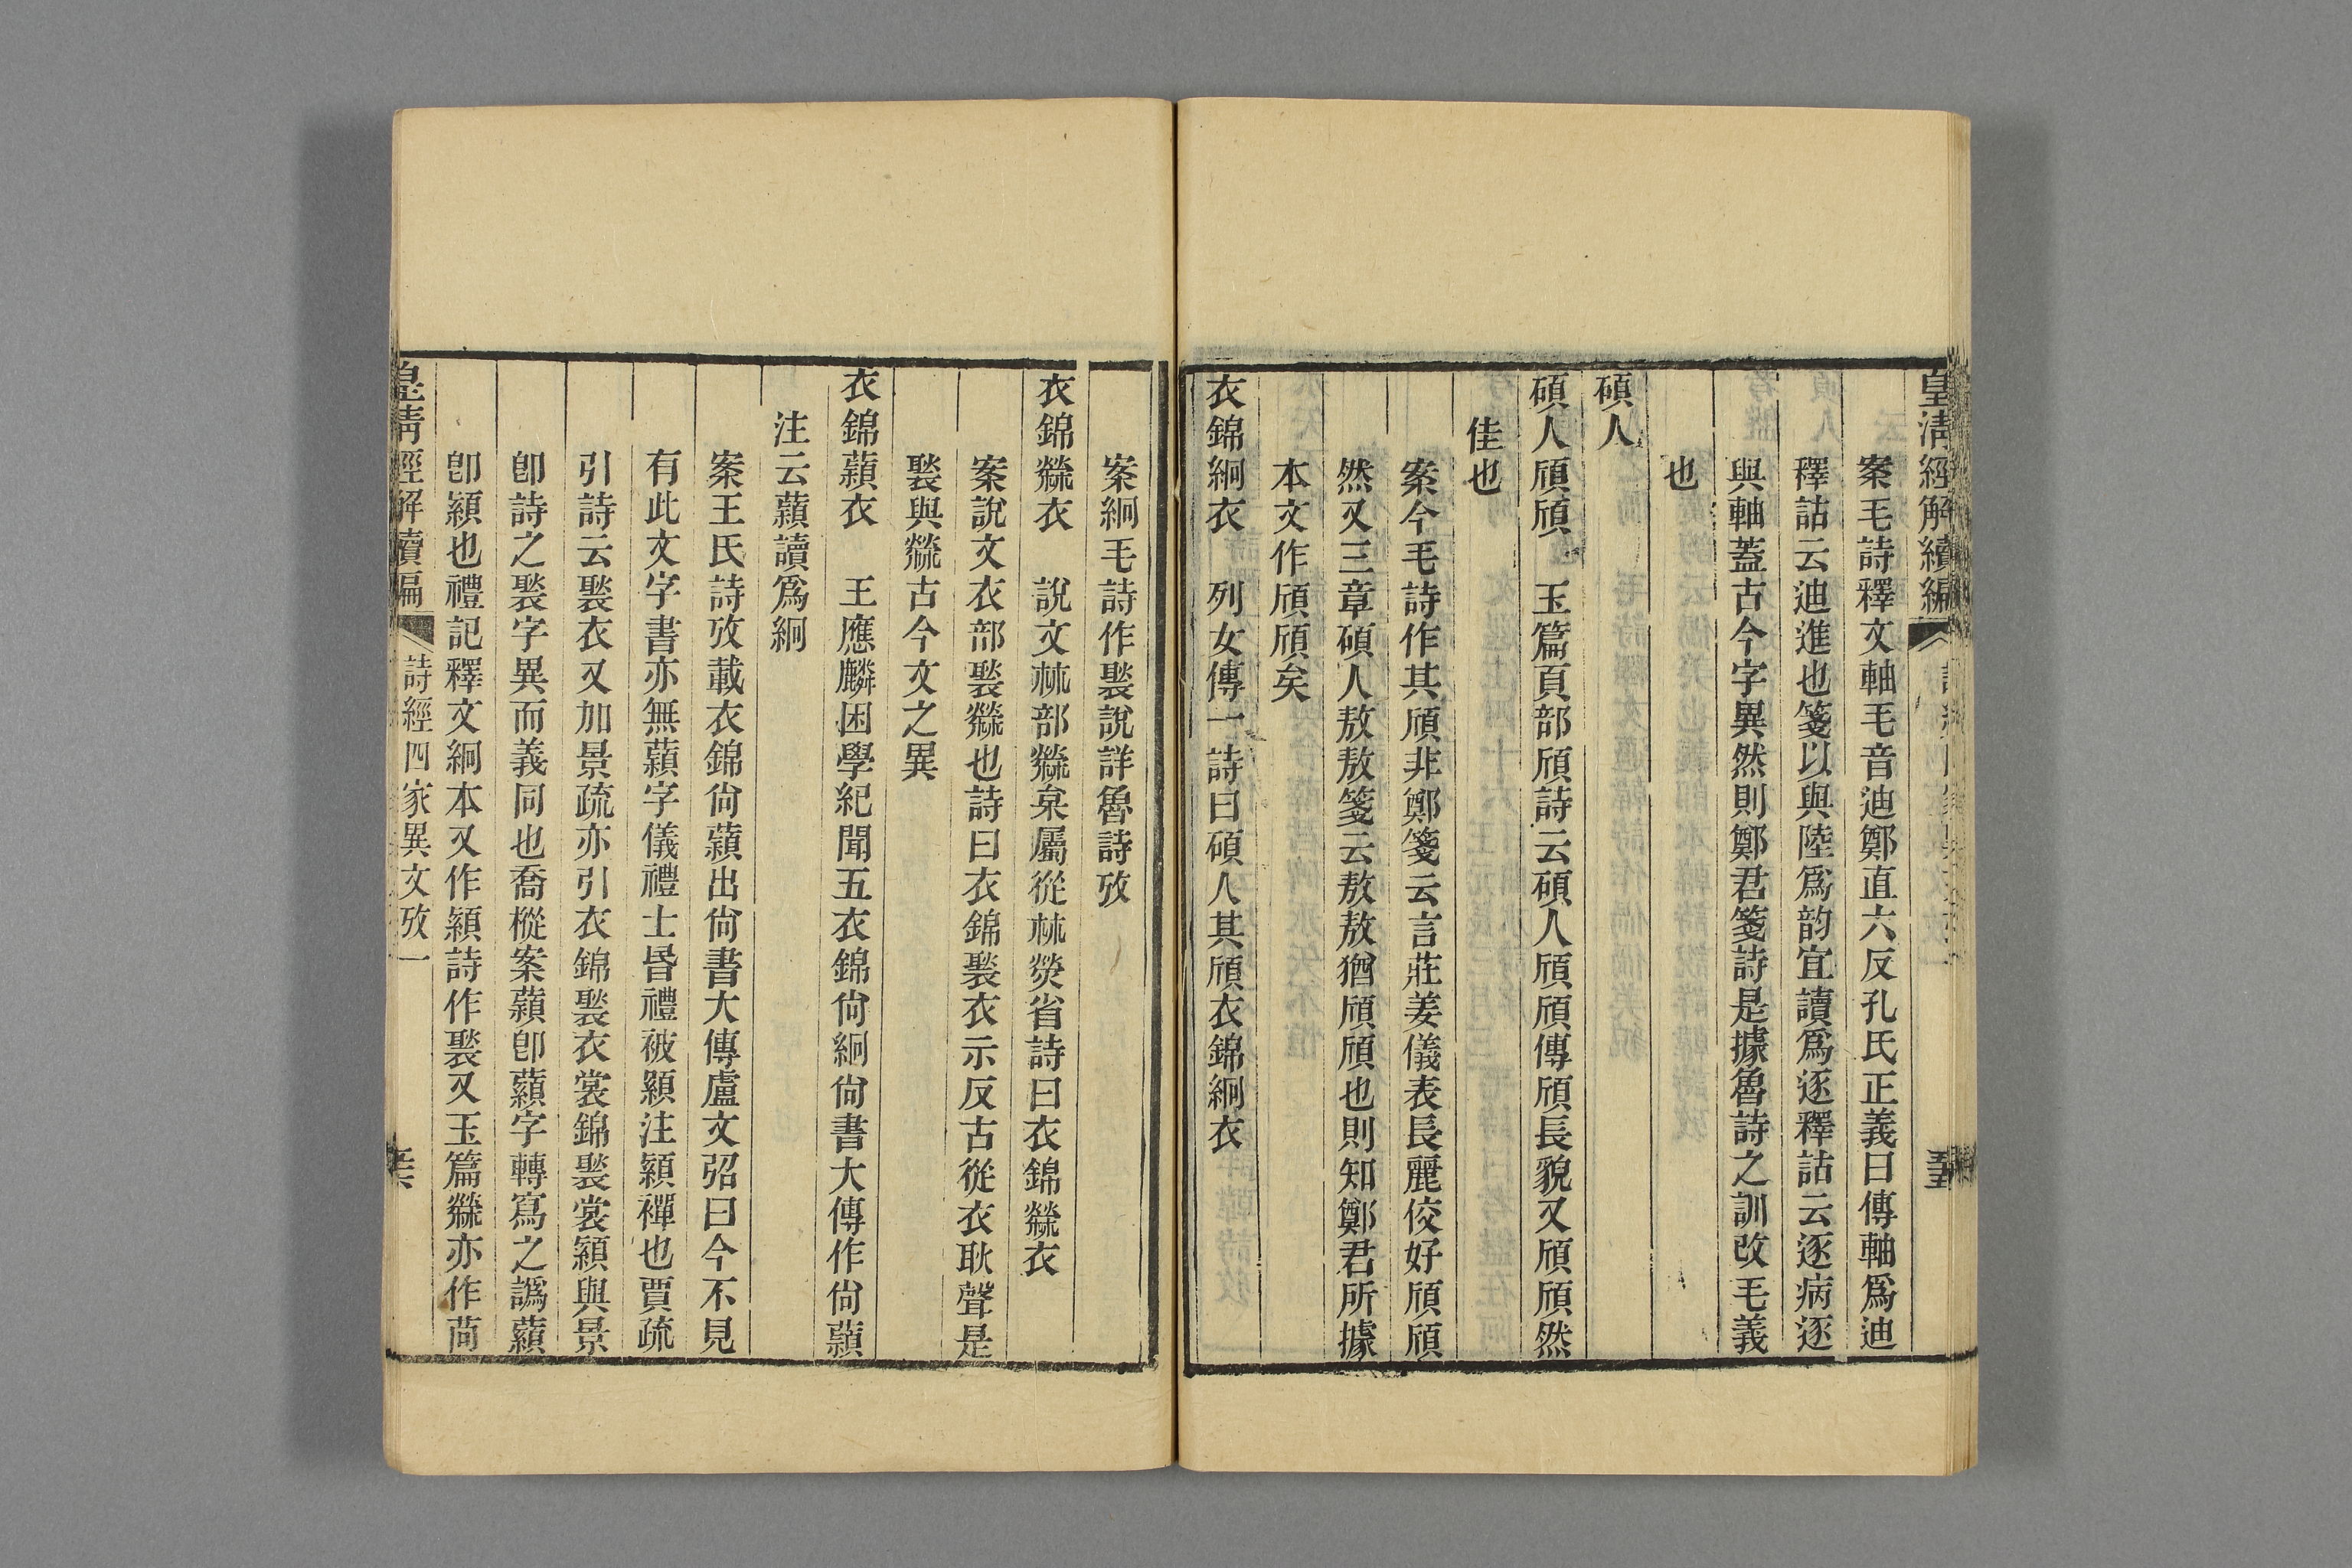 皇淸經解續編
案毛詩釋文軸毛音迪鄭直六反孔氏正義曰傳軸爲迪
釋詁云迪進也箋以與陸爲韵宜讀爲逐釋詁云逐病逐
與軸蓋古今字異然則鄭君箋詩是據魯詩之訓改毛義
也
碩人
碩人頎頎　玉篇頁部頎詩云碩人頎頎傳頎長貌又頎頎然
佳也
案今毛詩作其頎非鄭箋云言莊姜儀表長麗佼好頎頎
然又三章碩人敖敖箋云敖敖猶頎頎也則知鄭君所據
本文作頎頎矣
衣錦絅衣　列女傳一詩曰碩人其頎衣錦絅衣
案絅毛詩作褧說詳魯詩攷
衣錦檾衣　說文𣏟部檾枲屬從𣏟熒省詩曰衣錦檾衣
案說文衣部褧檾也詩曰衣錦褧衣示反古從衣耿聲是
褧與檾古今文之異
衣錦蘔衣　王應麟困學紀聞五衣錦尙絅尙書大傳作尙蘔
注云蘔讀爲絅
案王氏詩攷載衣錦尙蘔出尙書大傳盧文弨曰今不見
有此文字書亦無蘔字儀禮士昏禮被顈注顈襌也賈疏
引詩云褧衣又加景疏亦引衣錦褧衣裳錦褧裳顈與景
卽詩之褧字異而義同也喬樅案蘔卽蘏字轉寫之譌蘔
卽顈也禮記釋文絅本又作顈詩作褧又玉篇檾亦作䔛
皇淸經解續編
詩經四家異文攷一